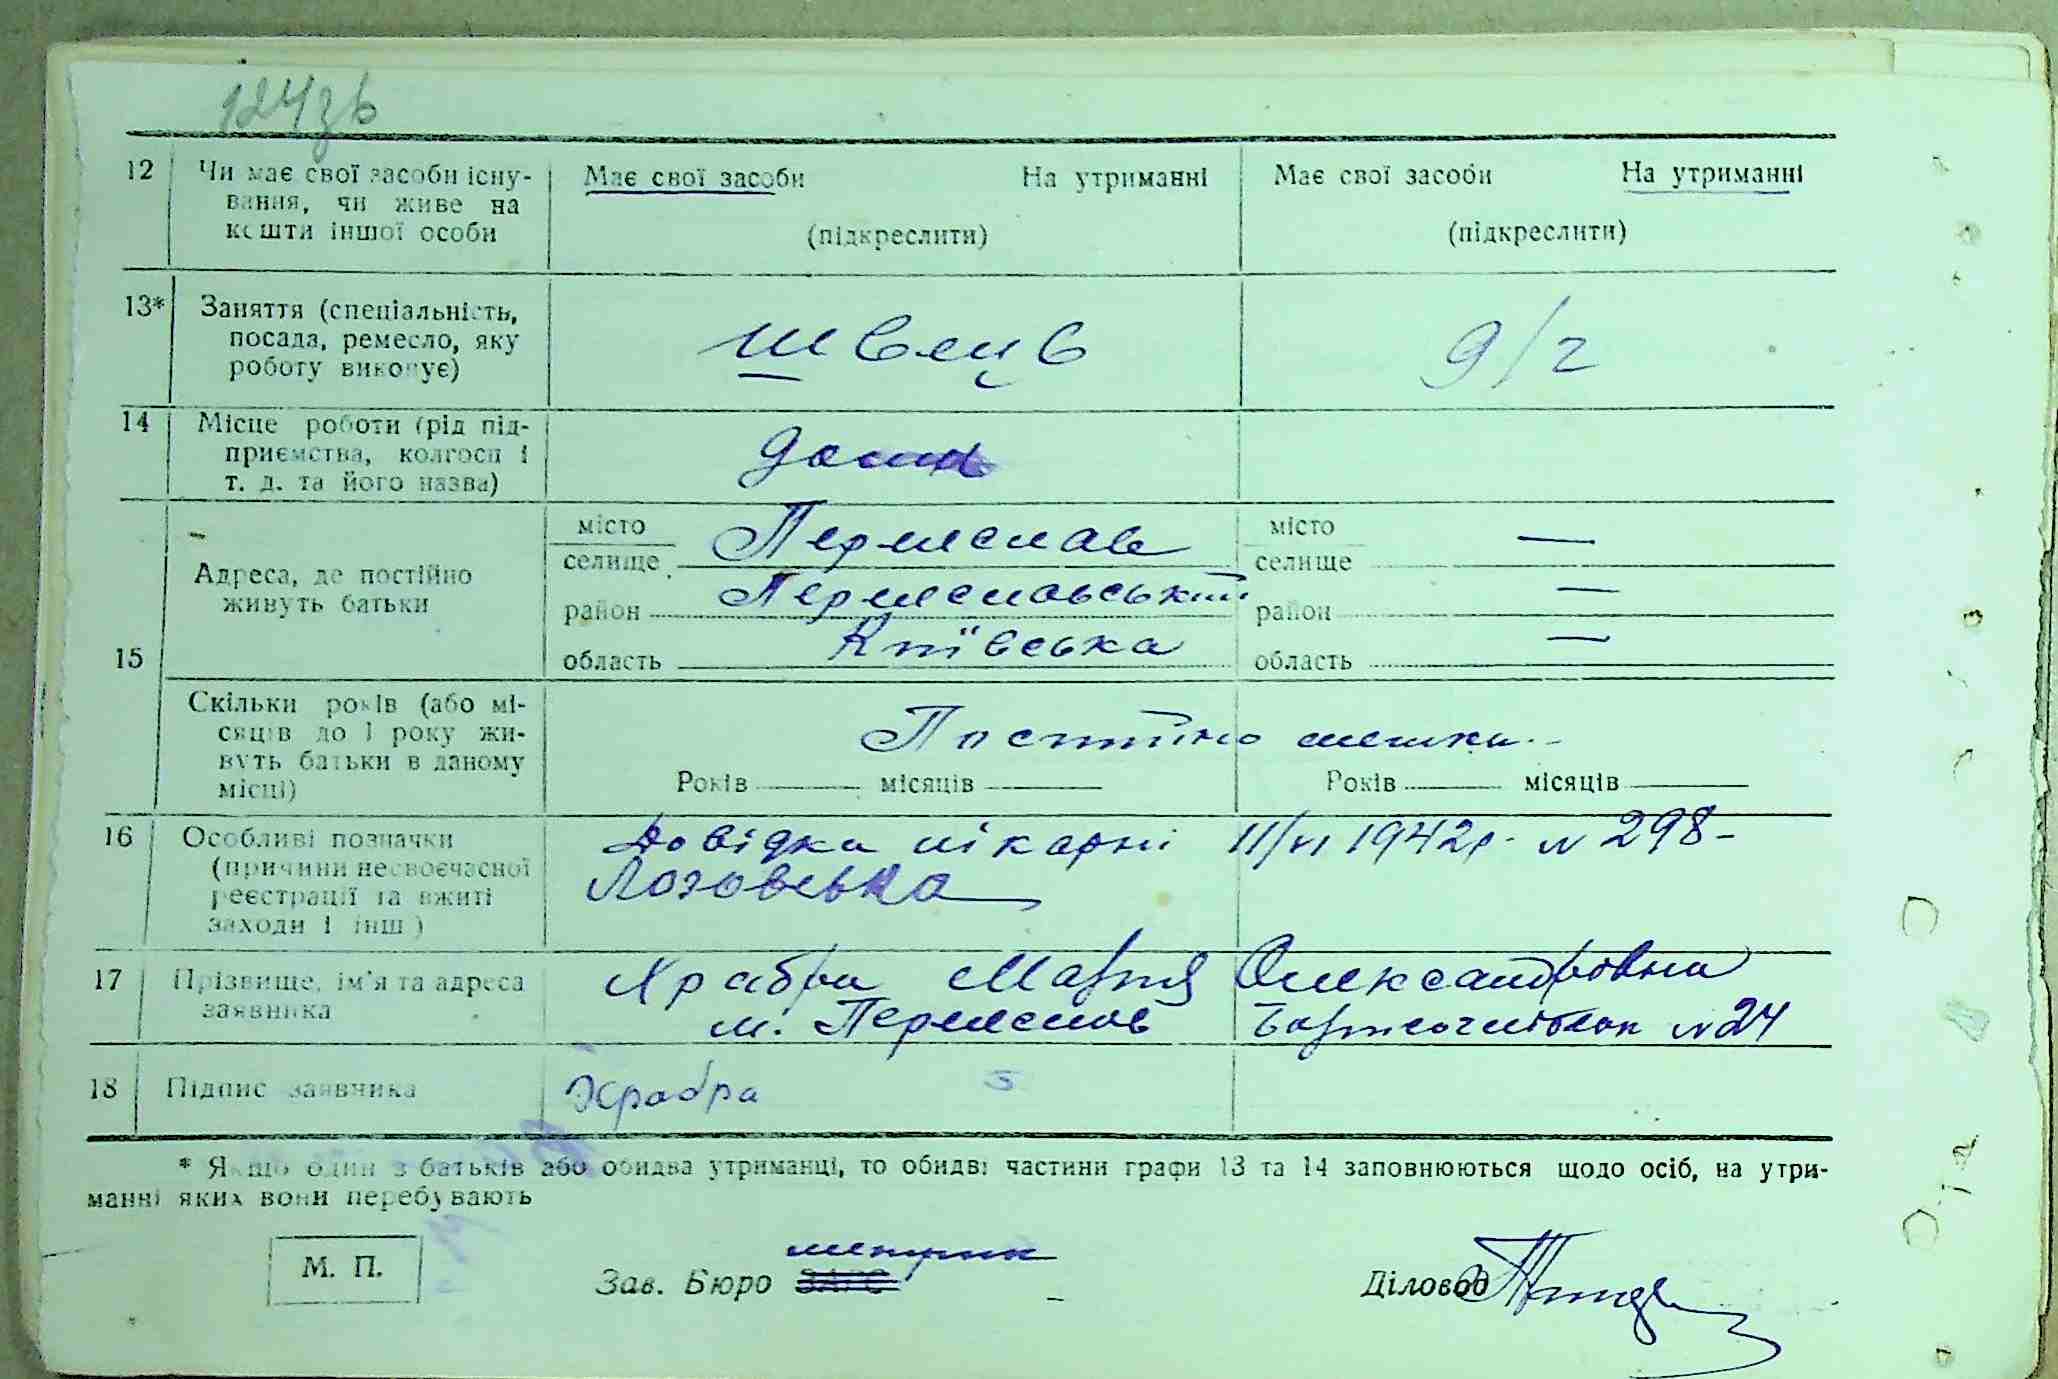 124зв
12 Чи має свої засоби існу- Має свої засоби На утриманні Має свої засоби На утриманні
вання, чи живе на
кошти іншої особи (підкреслити) (підкреслити)
13* Заняття (спеціальність,
посада, ремесло, яку швець д/г
роботу виконує)
14 Місце роботи (рід під-
приємства, колгосп і дома
т. д. та його назва)
місто Переяслав місто —
селище селище
Адреса, де постійно
живуть батьки район Переяславський район —
15 область Київська область —
Скільки років (або мі-
сяців до 1 року жи- Постійно мешка
вуть батьки в даному
місці) Років місяців Років місяців
16 Особливі позначки Довідка лікарні 11/VI 1942р. N 298-
(причини несвоєчасної Лозовська
реєстрації та вжиті
заходи і інш )
17 Прізвище, ім'я та адреса Храбра Марія Олександровна
заявника м. Переяслов N 24
18 Підпис заявника Храбра
* Якщо один з батьків або обидва утриманці, то обидві частини графи 13 та 14 заповнюються щодо осіб, на утри-
манні яких вони перебувають
метрик
М. П. Зав. Бюро ЗАГС Діловод